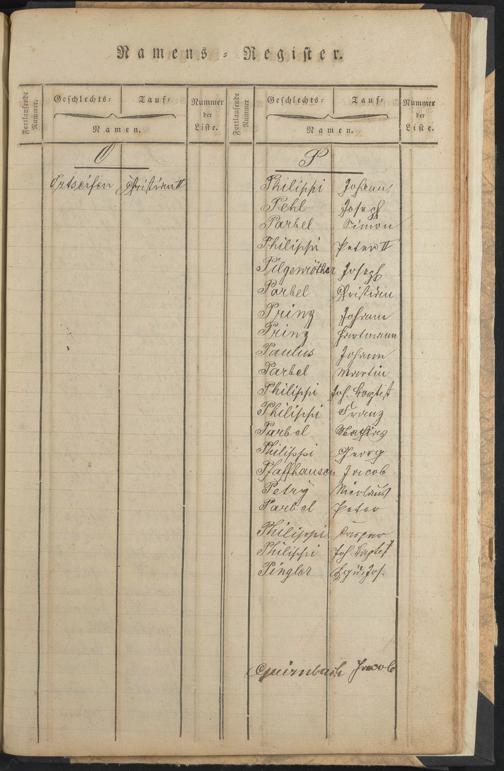 Namens-Register.
Fortlaufende Nummer.
Geschlechts-
Tauf-
Namen.
Nummer der Liste.
Fortlaufende Nummer.
Geschlechts-
Tauf-
Namen.
Nummer der Liste.
O
Ortseifen Christian II
P
Philippi Johann
Pehl Joseph
Parbel Simon
Philippi Peter II
Pilgenröther Joseph
Parbel Christian
Prinz Johann
Prinz Hartmann
Paulus Johann
Parbel Martin
Philippi Joh. Baptist
Philippi Franz
Parbel Mathias
Philippi Georg
Pfaffhausen Jacob
Petry Nicolaus
Parbel Peter
Philippi Caspar
Philippi Joh. Baptist
Pingler Jos.
Quirnbach Jacob